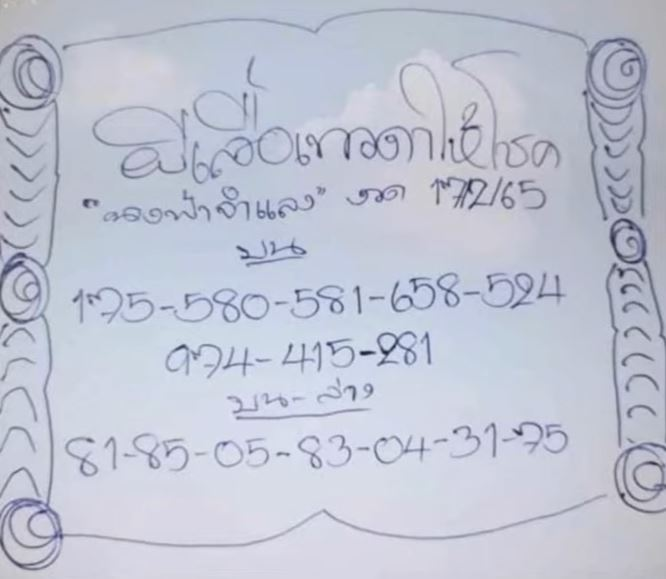 ผีเสื้อเทวดาให้โชค
"นางฟ้าจำแลง" งวด 17/2/65
บน
175-580-581-658-524
974-415-281
บน-ล่าง
81-85-05-83-04-31-75